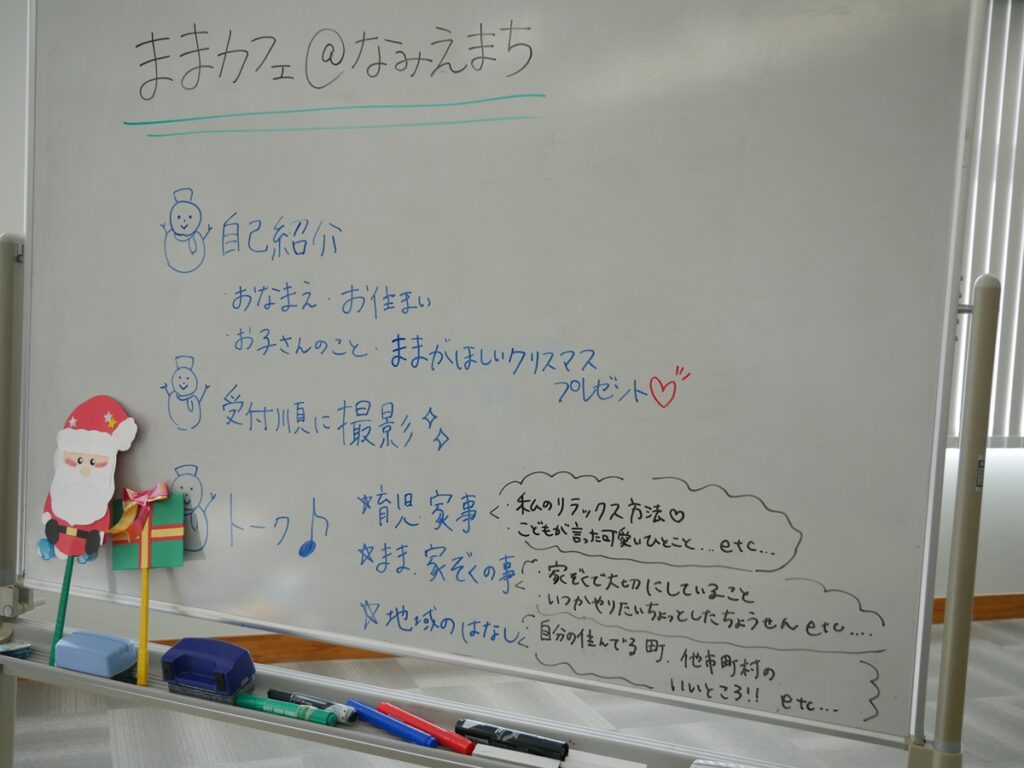 ままカフェ@なみえまち
自己紹介
・おなまえ・お住まい
・お子さんのこと・ままがほしいクリスマス
プレゼント♡
受付順に撮影
トーク♪
☆育児・家事
・私のリラックス方法♡
・こどもが言った可愛いひとこと...etc...
☆まま・家ぞくの事
・家ぞくで大切にしていること
・いつかやりたいちょっとしたちょうせん etc....
☆地域のはなし
・自分の住んでる町、他市町村の
いいところ!! etc...